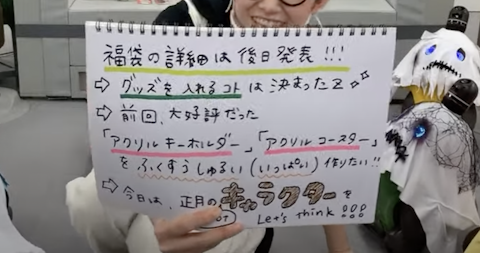 福袋の詳細は後日発表!!!
⇨ グッズを入れるコトは決まったZ☆
⇨ 前回、大好評だった
「アクリルキーホルダー」「アクリルコースター」
をふくすうしゅるい(いっぱい)作りたい!!
⇨ 今日は、正月のキャラクターを
Let's think!!!